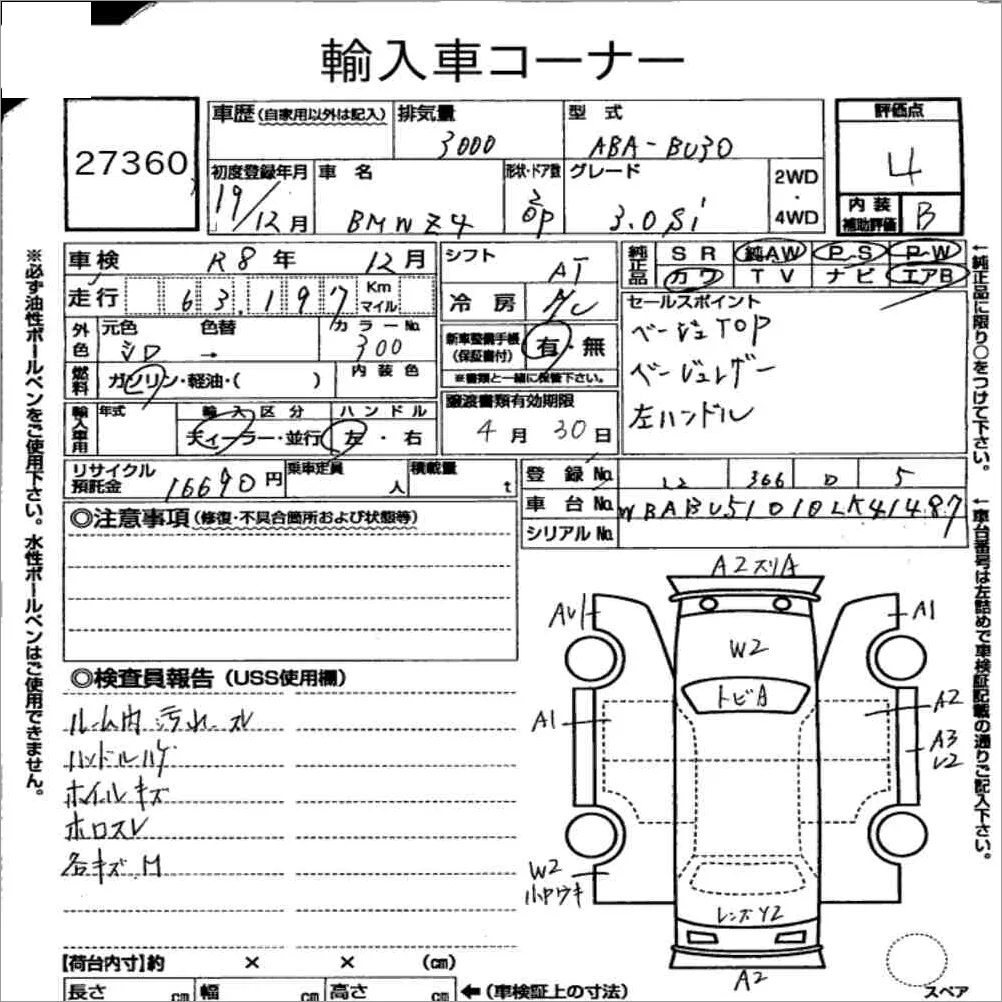 輸入車コーナー
27360
車歴(自家用以外は記入)
排気量
3000
型式
ABA-BU30
評価点
4
初度登録年月
19/12月
車名
BMW Z4
形状・ドア数
2
OP
グレード
3.0si
2WD
・
4WD
内装
補助評価
B
車検
R8年 12月
シフト
AT
純正品
SR 純AW PS PW
カワ TV ナビ エアB
走行
63,197
Km
マイル
冷房
A/C
セールスポイント
ベージュTOP
ベージュレザー
左ハンドル
外色
元色
シロ
色替
→
カラーNo.
300
新車整備手帳
(保証書付)
有・無
※書類と一緒に保管下さい。
燃料
ガソリン・軽油・( )
内装色
輸入車用
年式
輸入区分
ディーラー・並行
ハンドル
左・右
譲渡書類有効期限
4月30日
リサイクル
預託金
16690円
乗車定員
人
積載量
t
登録No.
366
5
車台No.
WBABU51010LK41487
シリアルNo.
◎注意事項(修復・不具合箇所および状態等)
◎検査員報告(USS使用欄)
ルーム内汚れ スレ
ハンドルハゲ
ホイルキズ
ホロスレ
各キズ M
A2スリA
A1
W2
トビA
A1
A2
A3
W2
小ヤウキ
レンズY2
A2
【荷台内寸】約 × × (cm)
長さ cm 幅 cm 高さ cm ←(車検証上の寸法)
スペア
※必ず油性ボールペンをご使用下さい。水性ボールペンはご使用できません。
←純正品に限り○をつけて下さい。
←車台番号は左詰めで車検証記載の通りご記入下さい。